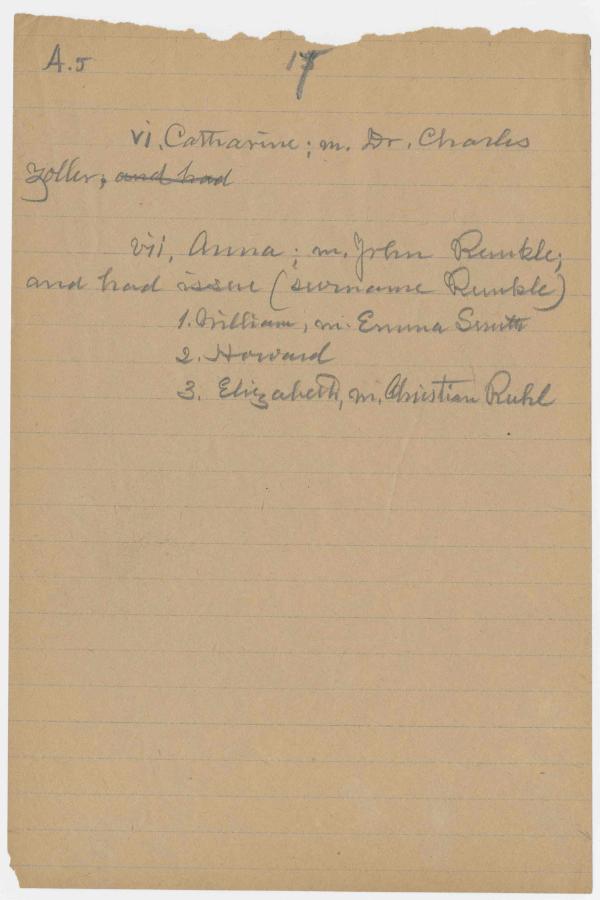 A.5 17
vi. Catharine; m. Dr. Charles
Zoller; and had
vii. Anna; m. John Runkle;
and had issue (surname Runkle)
1. William, m. Emma Smith
2. Howard
3. Elizabeth, m. Christian Ruhl